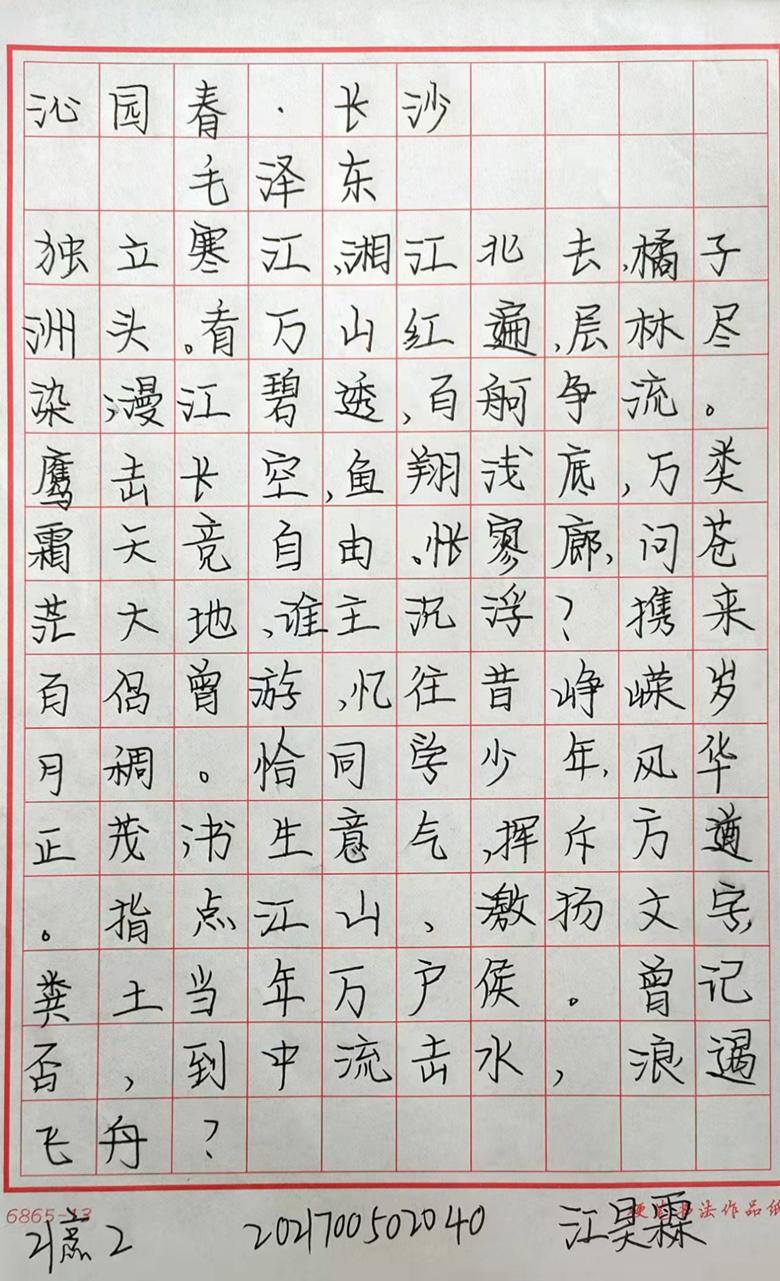 沁园春·长沙
毛泽东
独立寒江,湘江北去,橘子
洲头。看万山红遍,层林尽
染;漫江碧透,百舸争流。
鹰击长空,鱼翔浅底,万类
霜天竞自由。怅寥廊,问苍
茫大地,谁主沉浮?携来
百侣曾游,忆往昔峥嵘岁
月稠。恰同学少年,风华
正茂;书生意气,挥斥方遒
。指点江山、激扬文字,
粪土当年万户侯。曾记
否,到中流击水,浪遏
飞舟?
6865-13 硬笔书法作品纸
202170050 2040 江昊霖